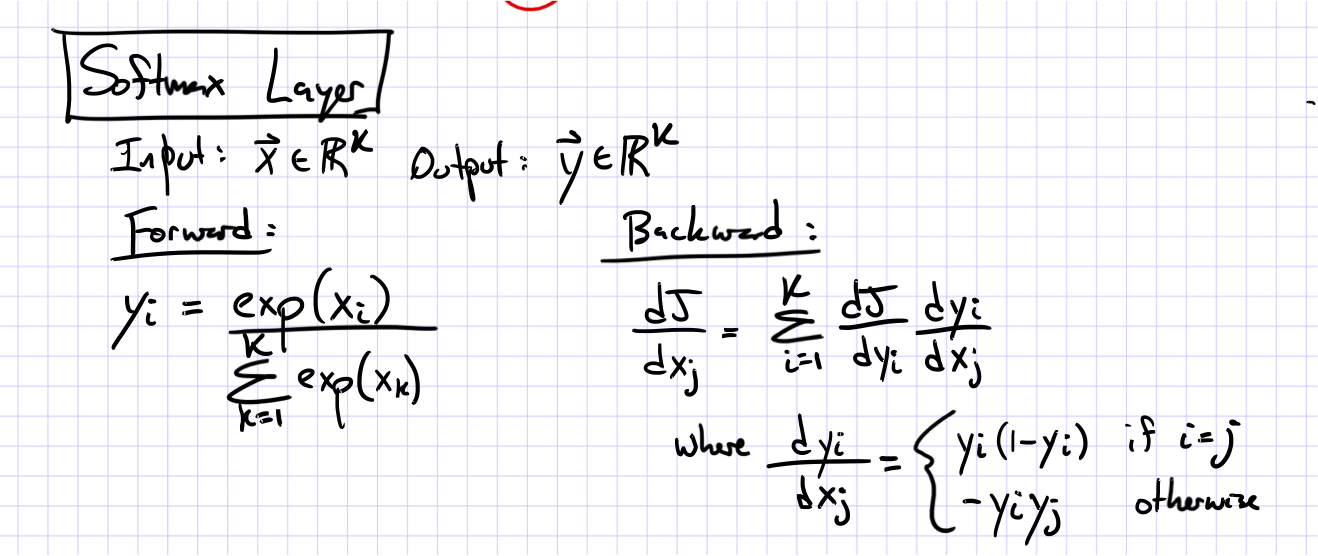 Softmax Layer
Input: x⃗ ∈ ℝ^K Output: y⃗ ∈ ℝ^K
Forward:
y_i = exp(x_i) / ∑_{k=1}^{K} exp(x_k)
Backward:
dJ/dx_j = ∑_{i=1}^{K} dJ/dy_i dy_i/dx_j
where dy_i/dx_j = { y_i(1-y_i) if i=j
-y_i y_j otherwise